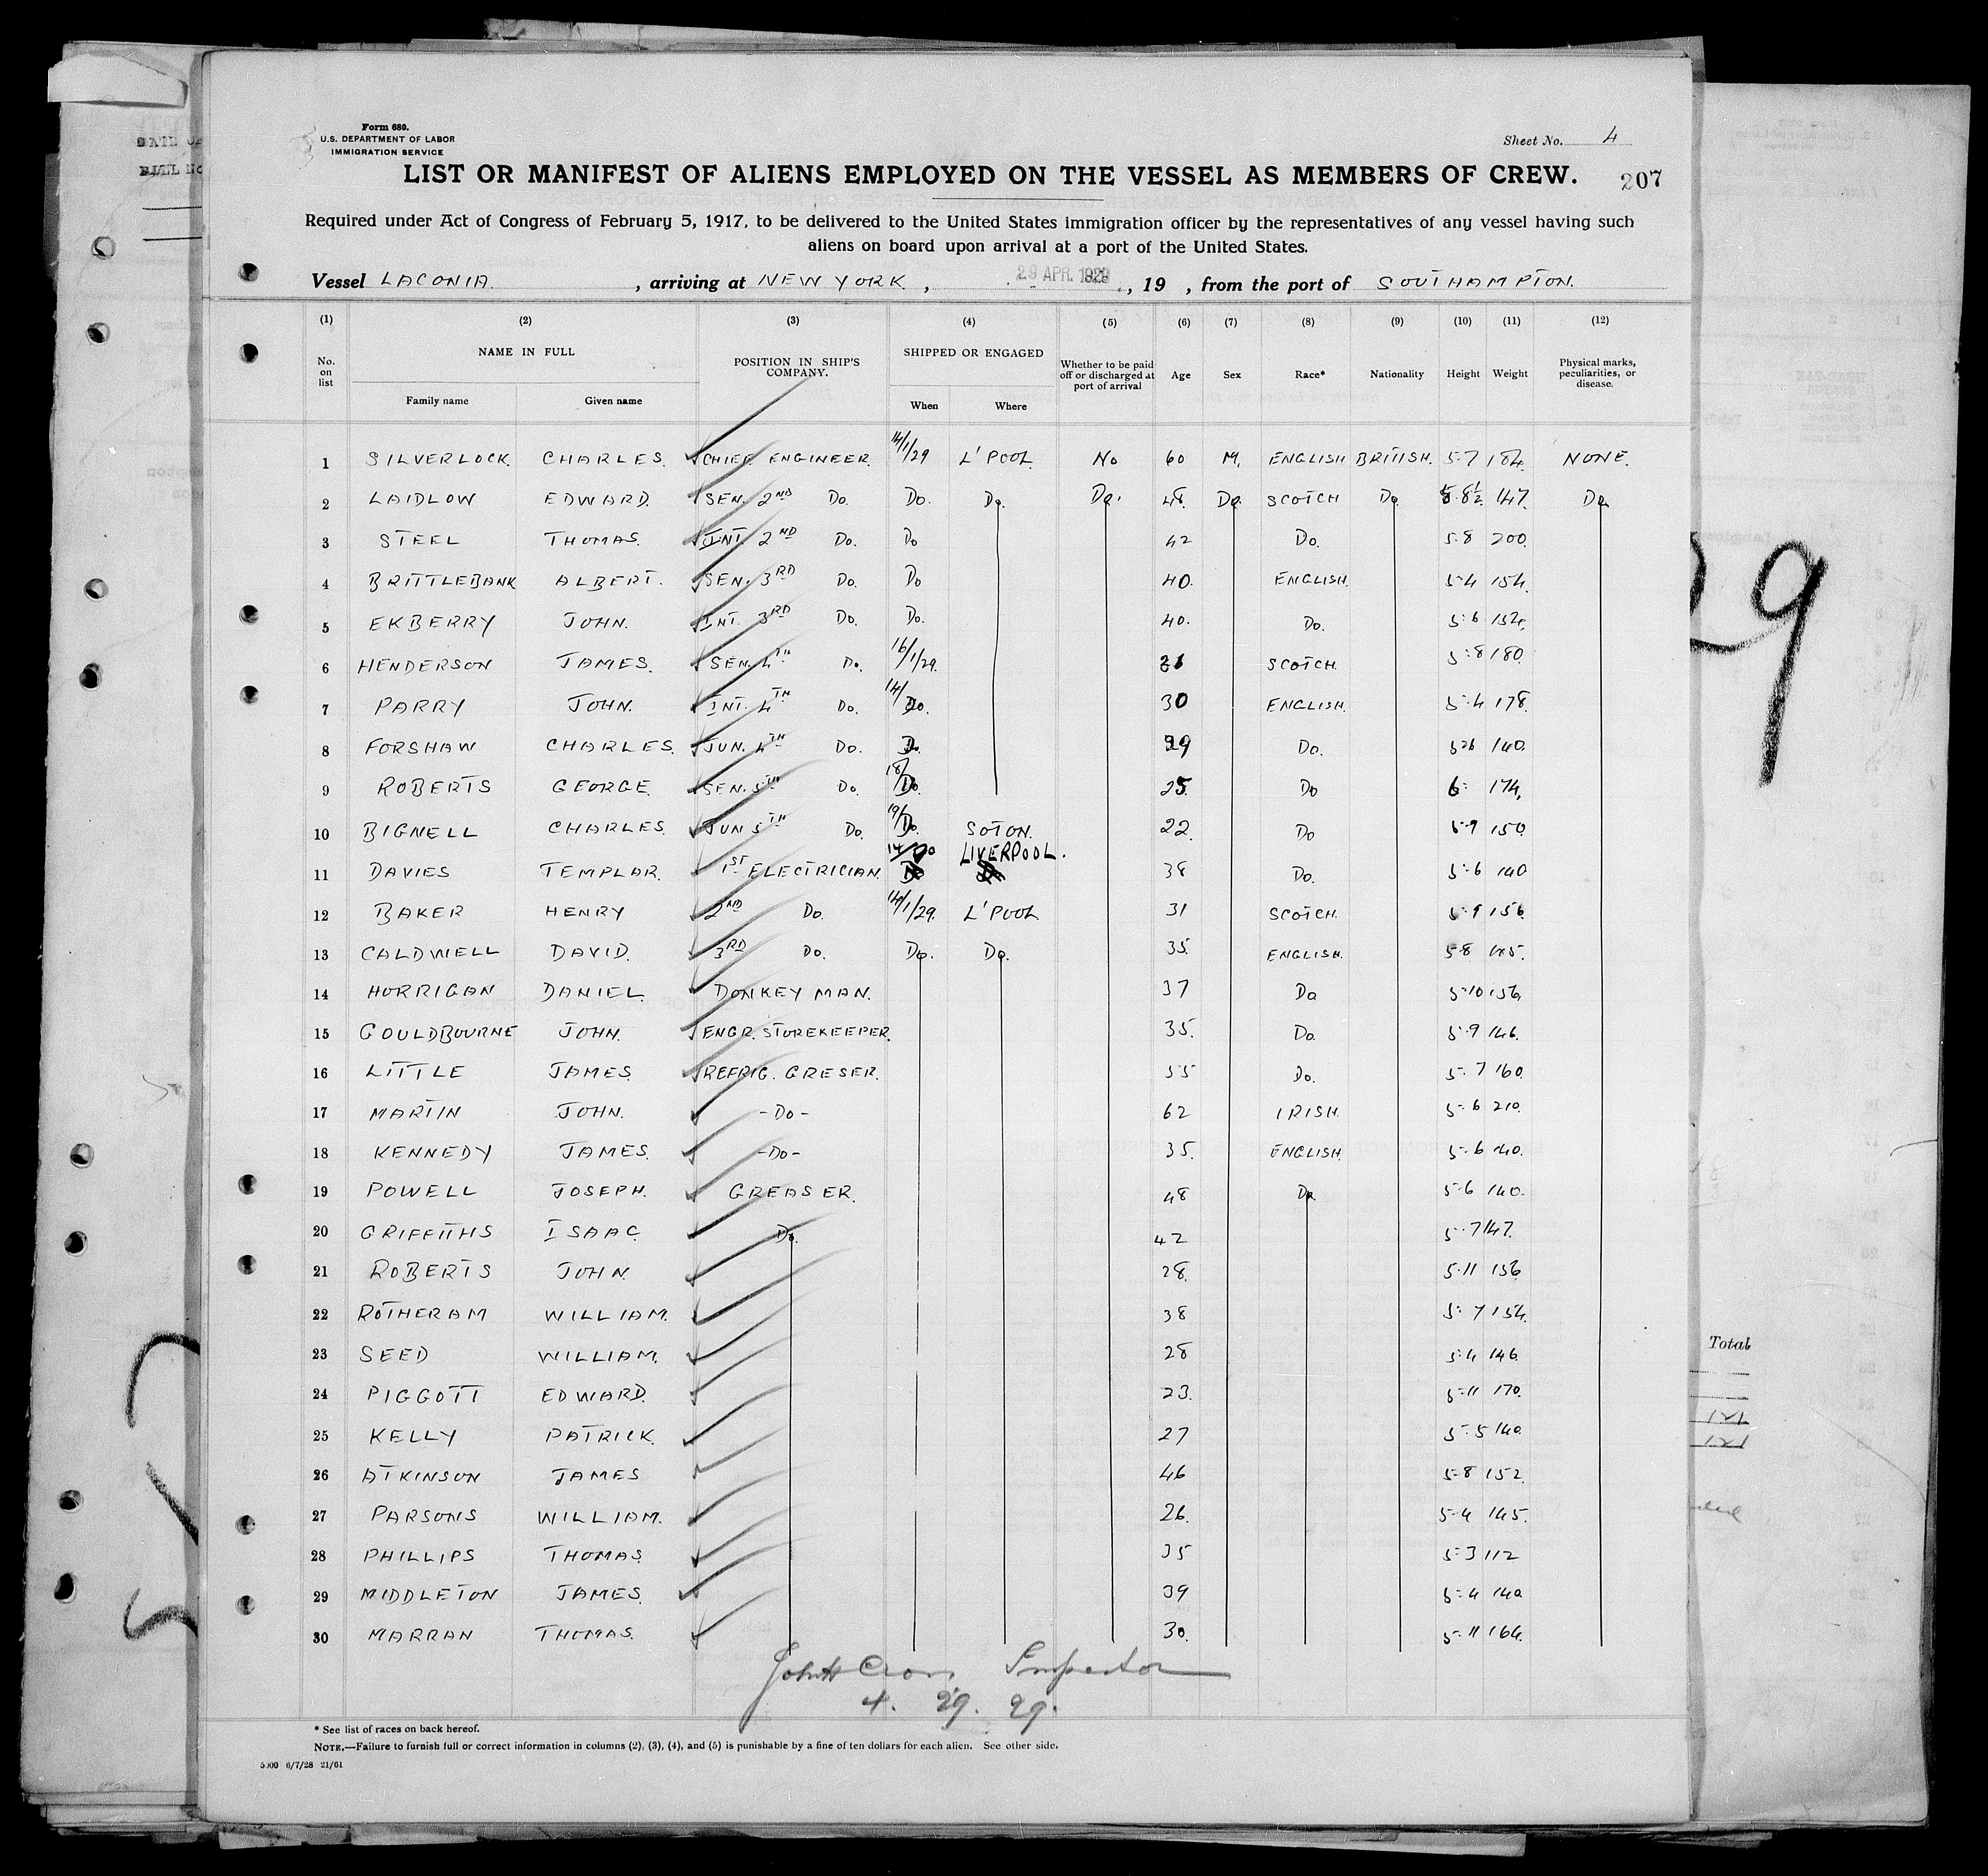 Form 680.
U.S. DEPARTMENT OF LABOR
IMMIGRATION SERVICE
Sheet No. 4
LIST OR MANIFEST OF ALIENS EMPLOYED ON THE VESSEL AS MEMBERS OF CREW.
207
Required under Act of Congress of February 5, 1917, to be delivered to the United States immigration officer by the representatives of any vessel having such
aliens on board upon arrival at a port of the United States.
Vessel LACONIA. , arriving at NEW YORK , 29 APR. 1929 , 19 , from the port of SOUTHAMPTON.
(1) (2) (3) (4) (5) (6) (7) (8) (9) (10) (11) (12)
No. on list NAME IN FULL Family name Given name POSITION IN SHIP'S COMPANY. SHIPPED OR ENGAGED When Where Whether to be paid off or discharged at port of arrival Age Sex Race* Nationality Height Weight Physical marks, peculiarities, or disease.
1 SILVERLOCK. CHARLES. CHIEF ENGINEER. 14/1/29 L'POOL. No 60 M. ENGLISH BRITISH. 5-7 184. NONE.
2 LAIDLOW EDWARD. SEN. 2ND Do. Do. Do. Do. 48. Do. SCOTCH Do 5.8½ 147. Do
3 STEEL THOMAS. INT. 2ND Do. Do 42 Do. 5-8 200.
4 BRITTLEBANK ALBERT. SEN. 3RD Do. Do 40. ENGLISH. 5-4 154.
5 EKBERRY JOHN. INT. 3RD Do. Do. 40. Do. 5-6 154.
6 HENDERSON JAMES. SEN. 4TH Do. 16/1/29. 31 SCOTCH. 5-8 180.
7 PARRY JOHN. INT. 4TH Do. 14/ Do. 30 ENGLISH. 5-4 178.
8 FORSHAW CHARLES. JUN. 4TH Do. Do. 29 Do. 5-6 140.
9 ROBERTS GEORGE. SEN. 5TH Do. 18/ Do. 25 Do 6- 174.
10 BIGNELL CHARLES. JUN 5TH Do. 19/ Do. SOTON. 22. Do 5-9 150.
11 DAVIES TEMPLAR. 1ST ELECTRICIAN. 14/ Do LIVERPOOL. 38 Do. 5-6 140
12 BAKER HENRY 2ND Do. 14/1/29. L'POOL 31 SCOTCH. 5-9 156
13 CALDWELL DAVID. 3RD Do. Do. Do. 35. ENGLISH. 5-8
14 HORRIGAN DANIEL. DONKEY MAN. 37 Do 5-10 156.
15 GOULDBOURNE JOHN. ENGR. STOREKEEPER. 35. Do. 5-9 146.
16 LITTLE JAMES REFRIG. GRESER. 55 Do. 5-7 160.
17 MARTIN JOHN. -Do- 62 IRISH. 5-6 210.
18 KENNEDY JAMES. -Do- 35. ENGLISH. 5-6 140.
19 POWELL JOSEPH. GREASER. 48 Do 5-6 140.
20 GRIFFITHS ISAAC. Do. 42 5-7 147.
21 ROBERTS JOHN 28. 5-11 156
22 ROTHERAM WILLIAM. 38 5-7 154.
23 SEED WILLIAM. 28 5-4 146.
24 PIGGOTT EDWARD. 23. 5-11 170.
25 KELLY PATRICK. 27 5-5 140.
26 ATKINSON JAMES 46 5-8 152.
27 PARSONS WILLIAM. 26. 5-4 145.
28 PHILLIPS THOMAS 35 5-3 112
29 MIDDLETON JAMES. 39 5-4 140
30 MARRAN THOMAS. 30. 5-11 164.
Inspector
4. 29. 29.
* See list of races on back hereof.
NOTE.—Failure to furnish full or correct information in columns (2), (3), (4), and (5) is punishable by a fine of ten dollars for each alien. See other side.
6/7/28 21/61
29
Total
121
121